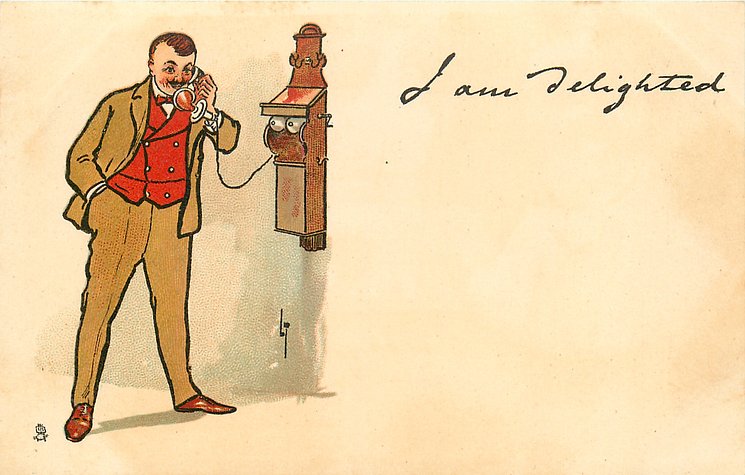 I am delighted